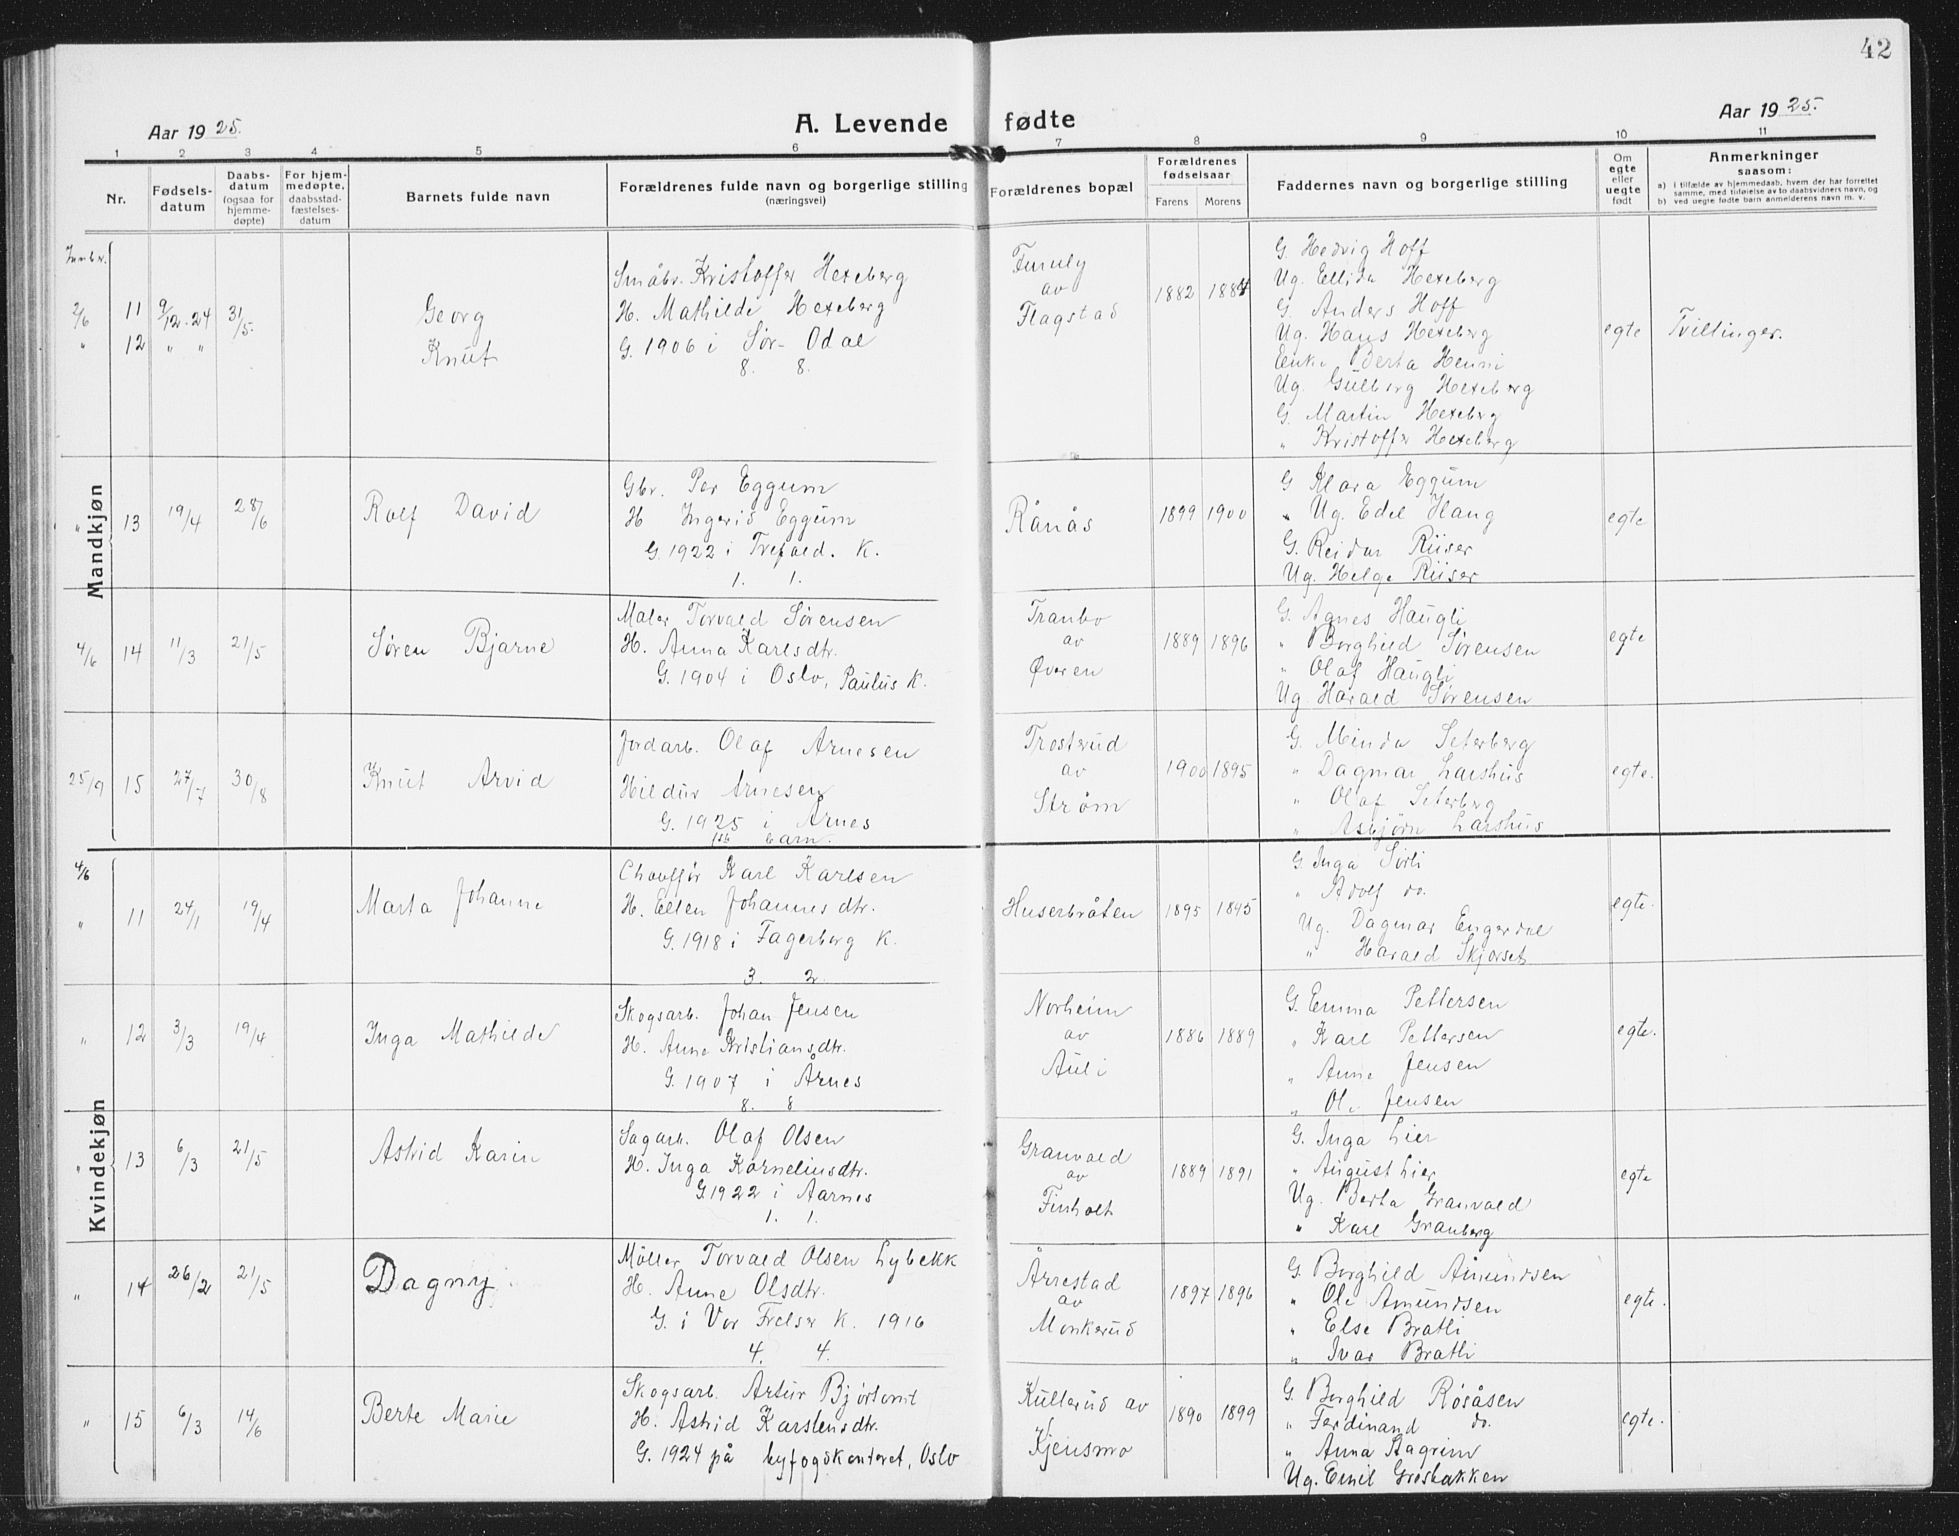 42
Aar 1925.
A. Levende fødte
Aar 1925.
1 2 3 4 5 6 7 8 9 10 11
Nr.
Fødsels-
datum
Daabs-
datum
(ogsaa for
hjemme-
døpte)
For hjem-
medøpte,
daabsstad-
fæstelses-
datum
Barnets fulde navn
Forældrenes fulde navn og borgerlige stilling
(næringsvei)
Forældrenes bopæl
Forældrenes
fødselsaar
Farens Morens
Faddernes navn og borgerlige stilling
Om
egte
eller
uegte
født
Anmerkninger
saasom:
a) i tilfælde av hjemmedaab, hvem der har forrettet
samme, med tilføielse av to daabsvidners navn, og
b) ved uegte fødte barn anmelderens navn m. v.
Mandkjøn
2/6 11 9/12-24 31/5
" 12 " "
Georg
Knut
Småbr. Kristoffer Hexeberg
H. Mathilde Hexeberg
G. 1906 i Sør-Odal
8. 8.
av
Flagstad
1882 1884
G. Hedvig Hoff
Ug. Ellida Hexeberg
G. Anders Hoff
Ug. Hans Hexeberg
Enke Berta Henni
Ug. Gulborg Hexeberg
G. Martin Hexeberg
" Kristoffer Hexeberg
egte
Tvillinger.
" 13 19/4 28/6
Rolf David
Gbr. Per Eggum
H Ingerid Eggum
G. 1922 i Trefold. K.
1. 1.
Rånås
1899 1900
G Klara Eggum
" Ug. Edel Haug
G. Reidar Riiser
Ug. Helge Riiser
egte
4/6 14 11/3 21/5
Søren Bjarne
Maler Torvald Sørensen
H. Anna Karlsdtr.
G. 1904 i Oslo, Paulus K.
Tranbo
av
Øveren
1889 1896
G. Agnes Haugli
" Borghild Sørensen
" Olaf Haugli
Ug. Harald Sørensen
egte
25/9 15 27/7 30/8
Knut Arvid
Jordarb. Olaf Arnesen
Hildur Arnesen
G. 1925 i Årnes
1ste barn.
Trosterud
av
Strøm
1900 1895
G. Minda Seterberg
" Dagmar Larshus
" Olaf Seterberg
" Asbjørn Larshus
egte.
Kvindekjøn
4/6
" 11 24/1 19/4
Marta Johanne
Chauffør Karl Karlsen
H. Ellen Johannesdtr.
G. 1918 i Fagerborg K.
3. 2
Huserbråten
1895 1895
G Inga Sørli
" Adolf do.
Ug. Dagmar Engerdal
" Harald Skjørset
egte.
" 12 3/3 19/4
Inga Mathilde
Skogsarb. Johan Jensen
H. Anne Kristiansdtr.
G. 1907 i Årnes
8. 8
Norheim
av
Auli
1886 1889
G. Emma Pettersen
" Karl Pettersen
" Anne Jensen
" Ole Jensen
egte.
" 13 6/3 21/5
Astrid Karin
Sagarb. Olaf Olsen
H. Inga Korneliusdtr.
G. 1922 i Aarnes
1. 1.
Granvold
av
Finholt
1889 1891
G. Inga Lier
" August Lier
Ug. Berta Granvold
" Karl Granberg
egte
" 14 26/2 21/5
Dagny
Møller Torvald Olsen Lybekk
H. Anne Olsdtr.
G. i Vor Frelser K. 1916
4. 4.
Årrestad
av
Monkerud
1897 1896
G. Borghild Amundsen
" Ole Amundsen
" Else Bratli
" Ivar Bratli
egte.
" 15 6/3 14/6
Berte Marie
Skogsarb. Artur Bjørtomt
H. Astrid Karstensdtr.
G. 1924 på byfogdkontoret, Oslo
Kullerud av
Kjensmo
1890 1899
G. Borghild Rosåsen
" Ferdinand do.
" Anna Stagrim
Ug. Emil Grøsbakken
egte.